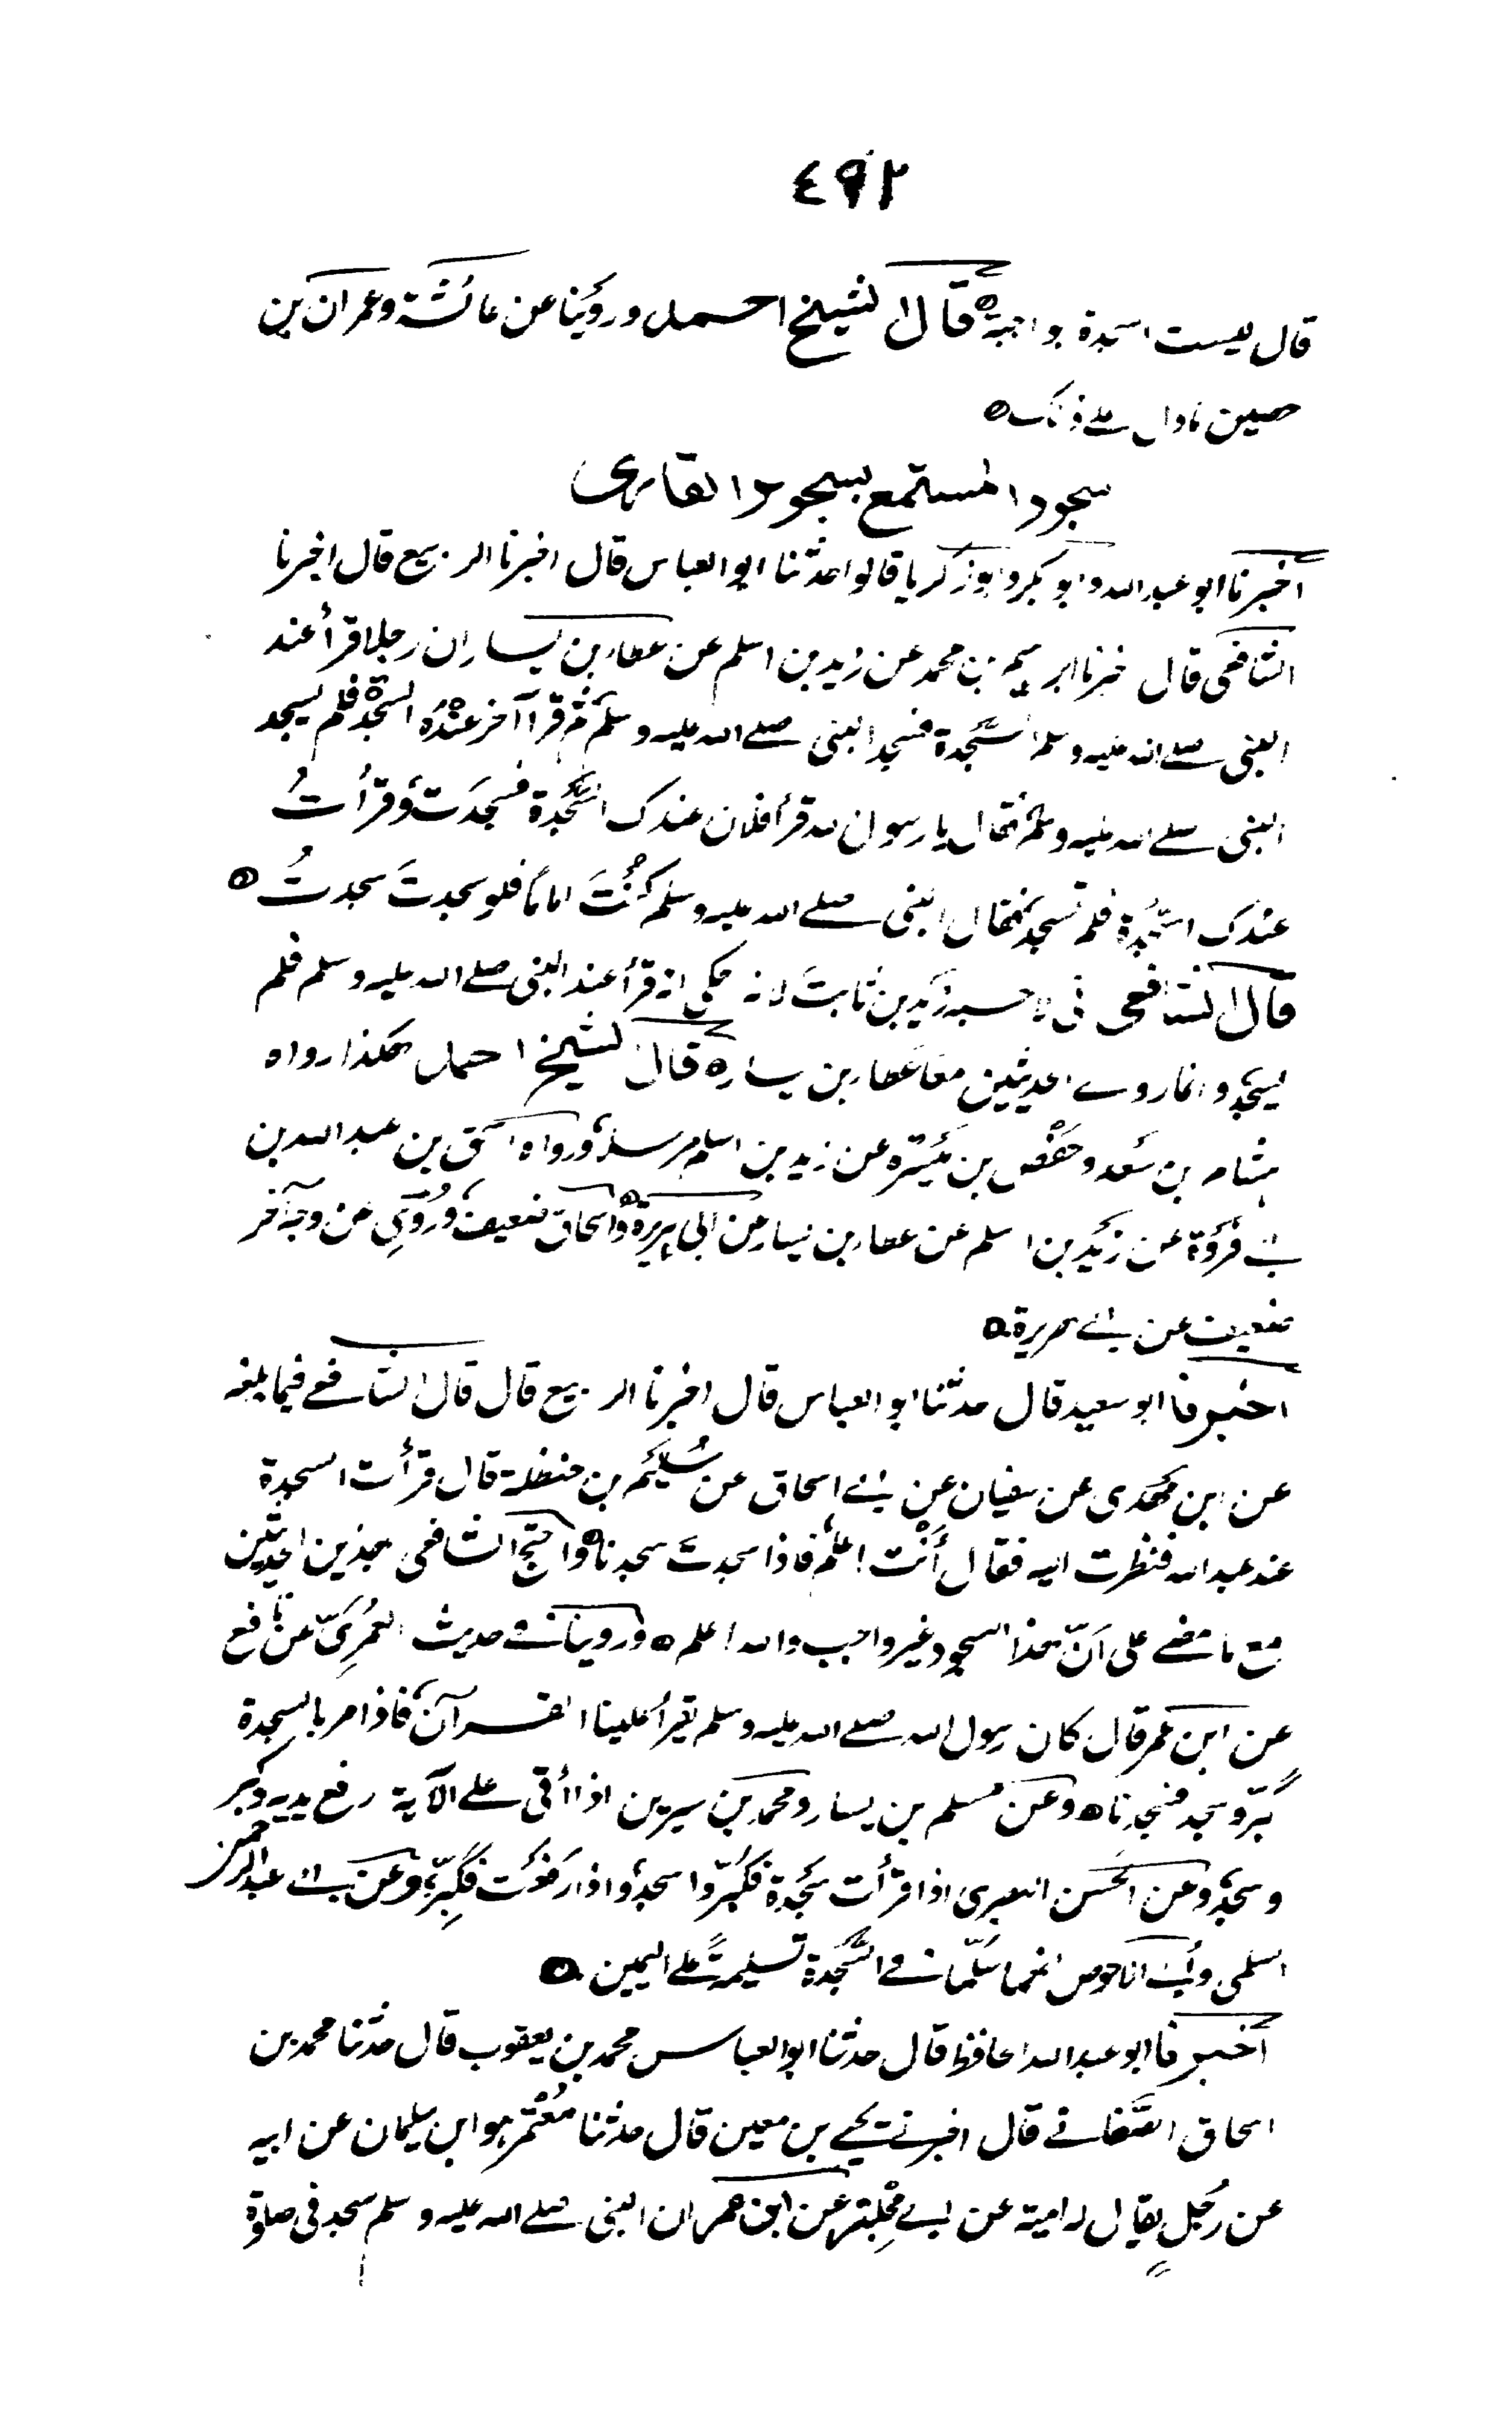 ٤٩٢
قال ليست السجدة بواجبة ه قال الشيخ احمد وروينا عن عائشة وعمران بن
حصين ما دل على ذلك ه
سجود المستمع بسجود القارى
اخبرنا ابو عبد الله وابو بكر وابو زكريا قالوا حدثنا ابو العباس قال اخبرنا الربيع قال اخبرنا
الشافعى قال اخبرنا ابراهيم بن محمد عن زيد بن اسلم عن عطاء بن يسار ان رجلا قرأ عند
النبى صلے الله عليه وسلم السَّجْدة فسجد النبى صلے الله عليه وسلم ثم قرأ آخر عنْدَهُ السَّجْدة فلم يسجد
النبى صلے الله عليه وسلم فقال يا رسول الله قرأ فلان عندك السَّجْدة فسجدَت وقرأتُ
عندك السَّجْدَة فلم تسجد فقال النبى صلے الله عليه وسلم كُنْتَ اماماً فلو سجدتَ سجدتُ ه
قال الشافعى فى لاحسبه زَيْد بن ثابتَ لانه حكى انه قرأ عند النبى صلے الله عليه وسلم فلم
يسجد وانما روے الحديثين معا عطاء بن يسار ه قال الشيخ احمد هكذا رواه
هشام بن سَعد وحَفْص بن مَيْسَرة عن زيد بن اسلم مرسلا ورواه اسحٰق بن عبد الله بن
ابے فَرْوَة عن زَيْد بن اسلم عن عطاء بن يسار عن ابى هريرة ه واسحاق ضعيف وَرُوِى من وجه آخر
ضعيف عن ابے هريرة ه
اخبرنا ابو سعيد قال حدثنا ابو العباس قال اخبرنا الربيع قال قال الشافعے فيما بلغه
عن ابن مَهْدى عن سفيان عن ابے اسحاق عن سُلَيْم بن حنظلة قال قرأت السجدة
عند عبد الله فنظرت اليه فقال أَنْت اعلم فاذا سجدت سجدنا ه واحتج الشافعى بهذين الحديثين
مع ما مضے على اَنّ هذا السجود غير واجب والله اعلم ه وروينا فے حديث العُمَرِىّ عن نافع
عن ابن عمر قال كان رسول الله صلے الله عليه وسلم يقرأ علينا القرآن فاذا مر بالسجدة
كَبّر وسجد فسجدنا ه وعن مسلم بن يسار ومحمد بن سيرين اذا أتى على الآية رفع يديه وكبر
وسجد وعن الحَسن البصرى اذا قرأت سَجْدة فكبّر واسجد واذا رَفَعْت فكَبِّر وعن ابے عبد الرحمن
السلمى وأبى الاحوص انهما سلّما فے السَّجْدة تسليمةً على اليمين ه
اخبرنا ابو عبد الله الحافظ قال حدثنا ابو العباس محمد بن يعقوب قال حدثنا محمد بن
اسحاق الصَّغانے قال اخبرنے يحيے بن معين قال حدثنا مُعْتمر هو ابن سليمان عن ابيه
عن رَجُلٍ يقال له امية عن ابے مِجْلَز عن ابن عمر ان النبى صلے الله عليه وسلم سجد فى صلوة